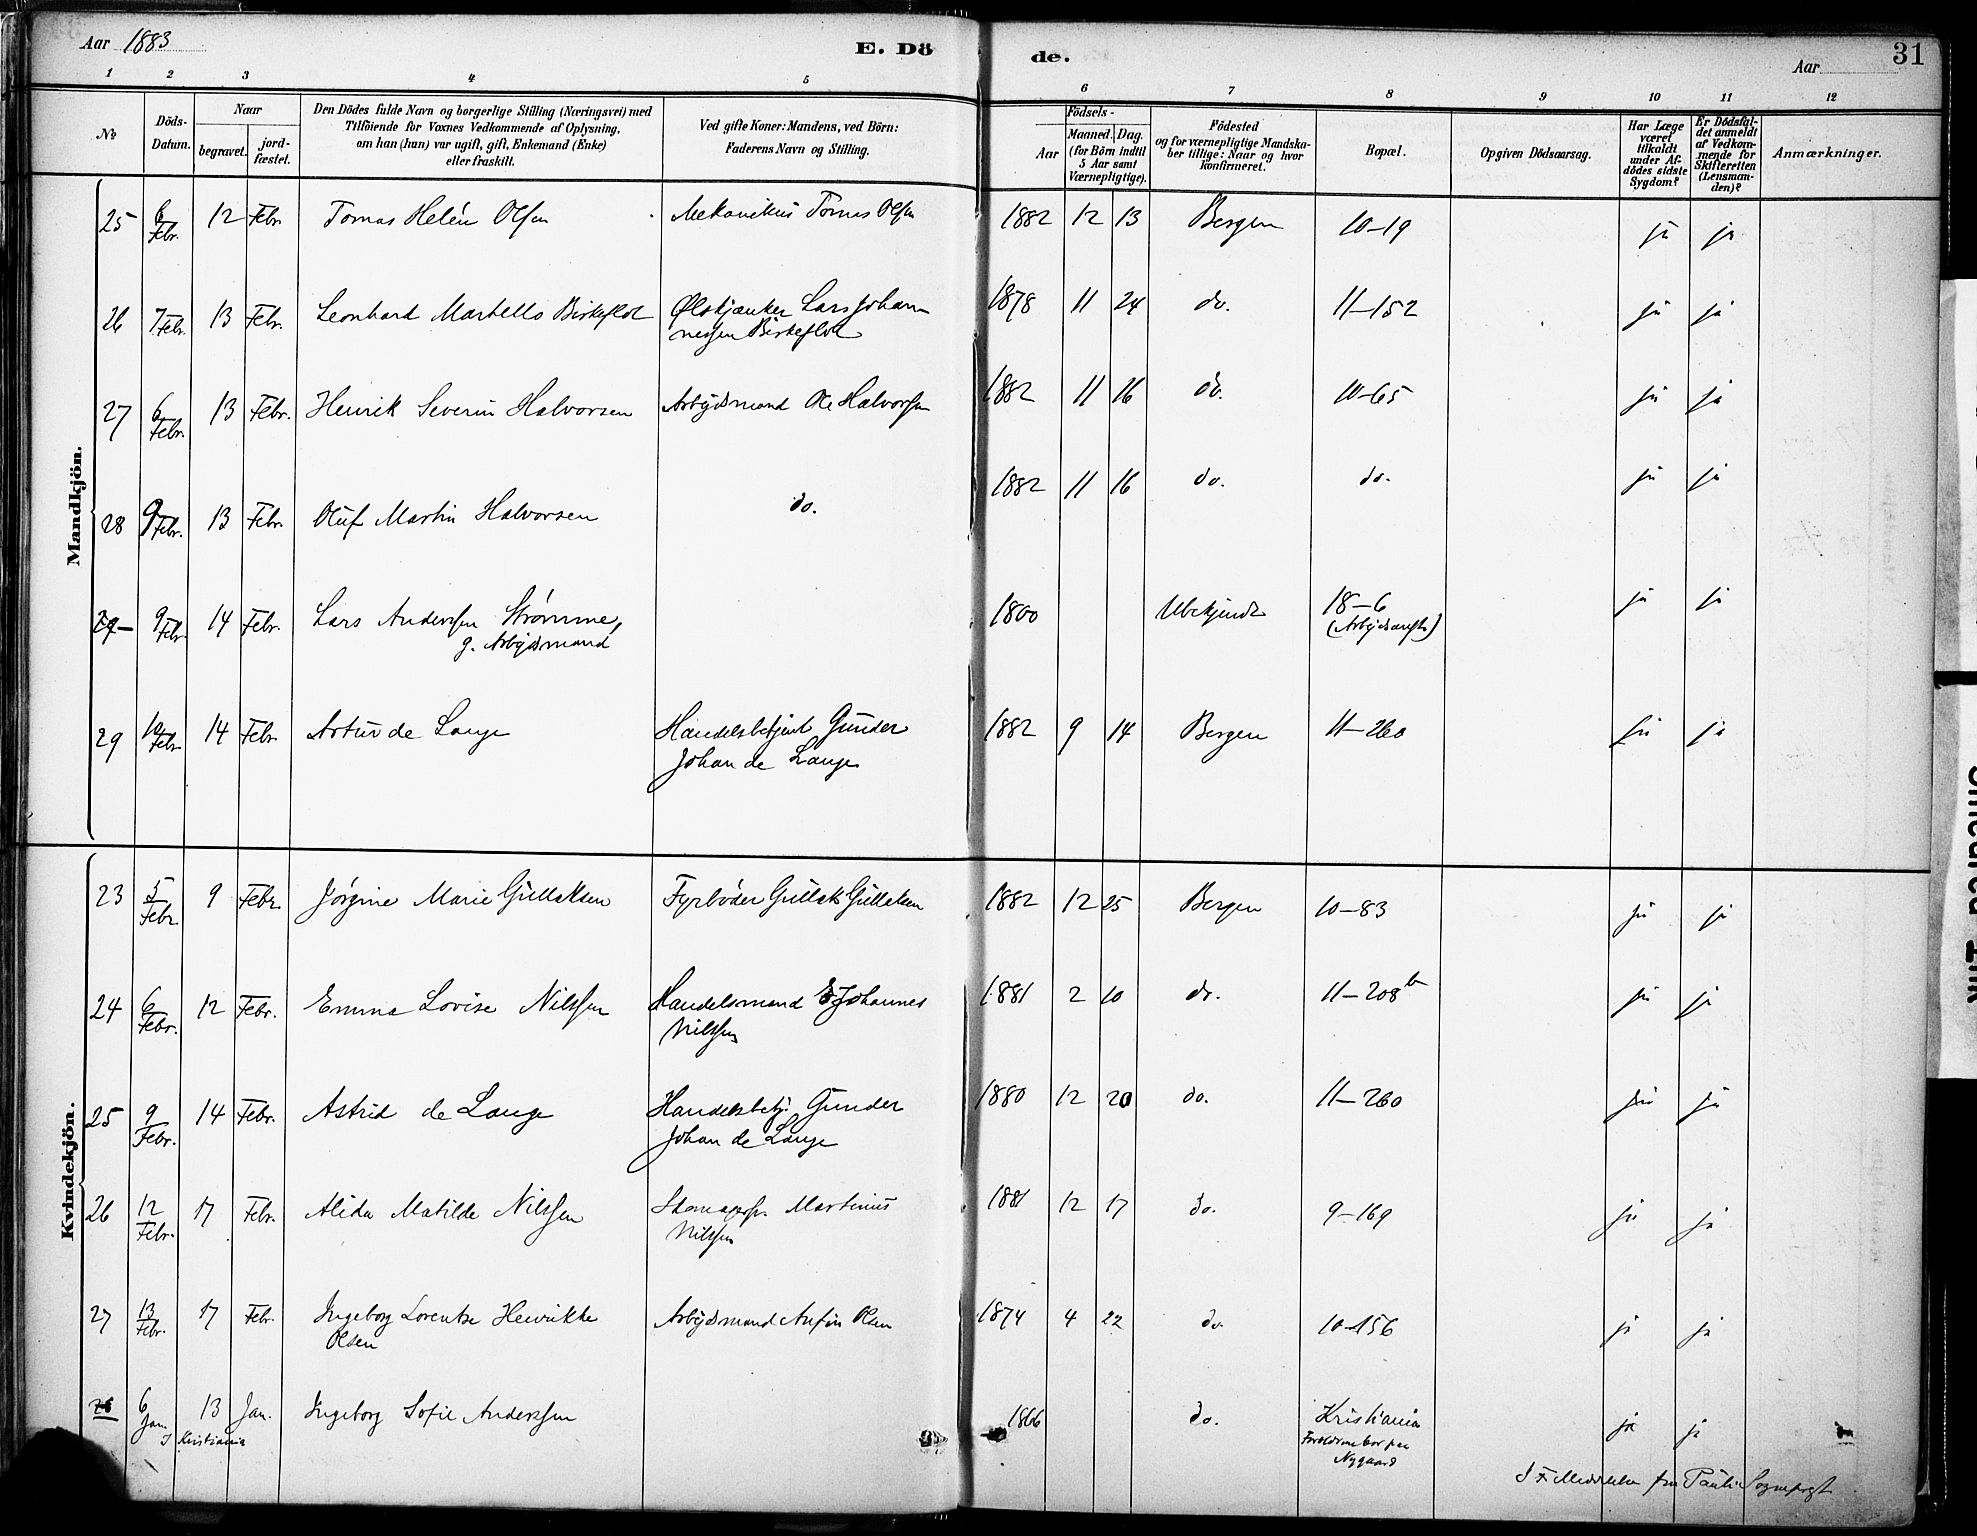 Aar 1883 E. Dö de. Aar 31
1 2 3 4 5 6 7 8 9 10 11 12
No Döds-Datum. Naar begravet. jord-fæstet. Den Dödes fulde Navn og borgerlige Stilling (Næringsvei) med Tilföiende for Voxnes Vedkommende af Oplysning, om han (hun) var ugift, gift, Enkemand (Enke) eller fraskilt. Ved gifte Koner: Mandens, ved Börn: Faderens Navn og Stilling. Födsels- Aar Maaned. Dag. (for Börn indtil 5 Aar samt Værnepligtige). Födested og for værnepligtige Mandskaber tillige: Naar og hvor konfirmeret. Bopæl. Opgiven Dödsaarsag. Har Læge været tilkaldt under Afdödes sidste Sygdom? Er Dödsfaldet anmeldt af Vedkommende for Skifteretten (Lensmanden)? Anmærkninger.
Mandkjön.
25 6 Febr. 12 Febr. Tomas Helén Olsen Mekanikus Tomas Olsen 1882 12 13 Bergen 10-19 ja ja
26 7 Febr. 13 Febr. Leonhard Martello Birkeflot Ølskjænker Lars Johan-
nessen Birkeflot 1878 11 24 do. 11-152 ja ja
27 6 Febr. 13 Febr. Henrik Severin Halvorsen Arbejdsmand Ole Halvorsen 1882 11 16 do. 10-65 ja ja
28 9 Febr. 13 Febr. Oluf Martin Halvorsen do. 1882 11 16 do. do. ja ja
29 9 Febr. 14 Febr. Lars Anderssen Strømme,
g. Arbejdsmand 1800 Ubekjendt 18-6
(Arbejdsanst.) ja ja
29 10 Febr. 14 Febr. Artur de Lange Handelsbetjent Gunder
Johan de Lange 1882 9 14 Bergen 11-260 ja ja
Kvindekjön.
23 5 Febr. 9 Febr. Jørgine Marie Gullaksen Fyrbøder Gullak Gullaksen 1882 12 25 Bergen 10-83 ja ja
24 6 Febr. 12 Febr. Emma Lovise Nilssen Handelsmand Johannes
Nilssen 1881 2 10 do. 11-208 b ja ja
25 9 Febr. 14 Febr. Astrid de Lange Handelsbetj. Gunder
Johan de Lange 1880 12 20 do. 11-260 ja ja
26 12 Febr. 17 Febr. Alida Matilde Nilssen Martinus
Nilssen 1881 12 17 do. 9-169 ja ja
27 13 Febr. 17 Febr. Ingeborg Lorentze Henrikke
Olsen Arbejdsmand Anfin Olsen 1874 4 22 do. 10-156 ja ja
6 Jan. 13 Jan. Ingeborg Sofie Anderssen 1866 do. Kristiania ja ja
I Kristiania Forældrene bor paa
Nygaard
Meddelelse fra Pauli Sognepræst